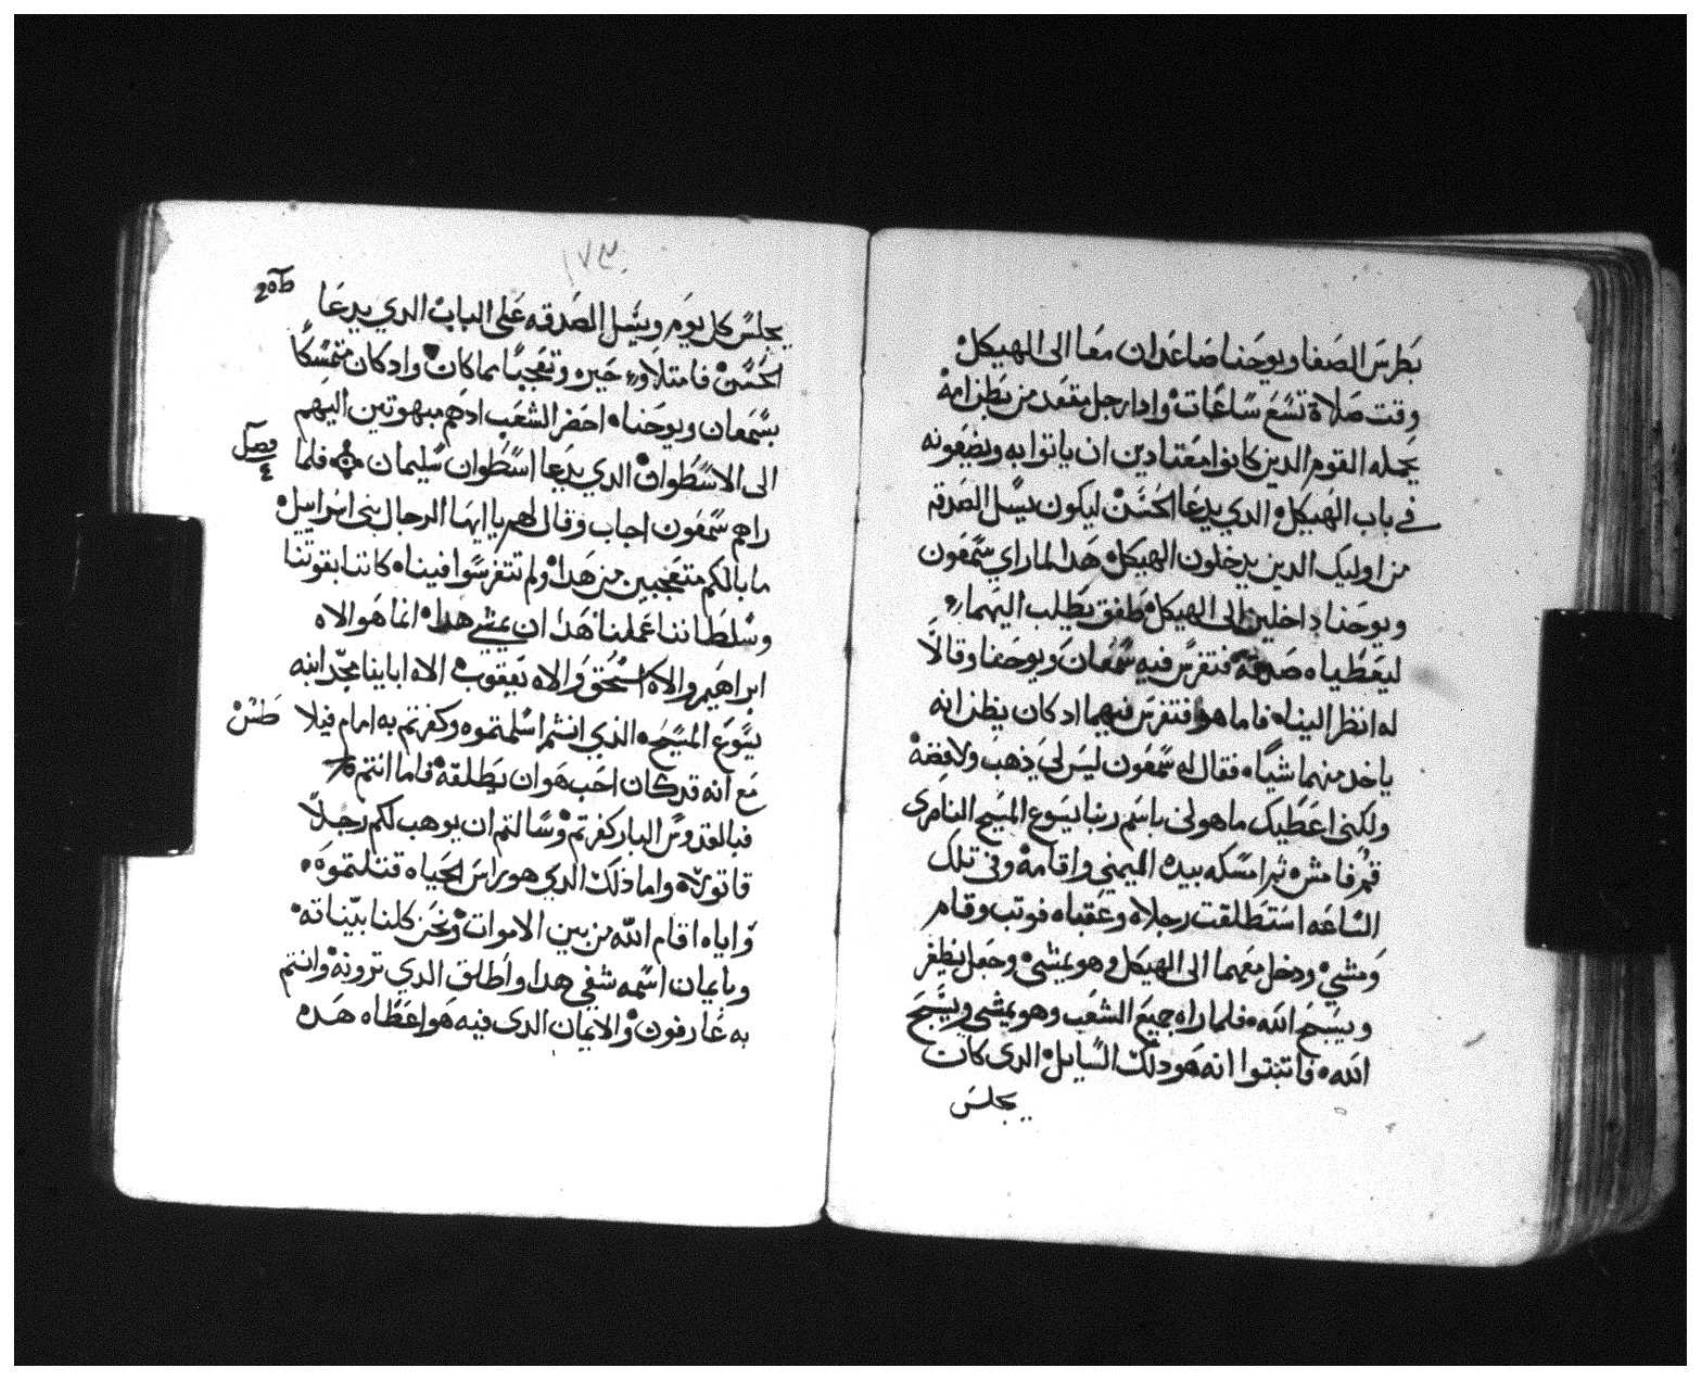 بطرس الصفا ويوحنا صاعدان معا الى الهيكل
وقت صلاة تسع ساعات وادا رجل مقعد من بطن امه
يحمله القوم الدين كانوا معتادين ان ياتوا به ويضعونه
في باب الهيكل الدي يدعا الحسن ليكون يسل الصدقه
من اوليك الدين يدخلون الهيكل هدا لما راي سمعون
ويوحنا داخلين الى الهيكل طفق يطلب اليهما
ليعطياه صدقه فتفرس فيه سمعان ويوحنا وقالا
له انظر الينا فاما هو فتفرس فيهما اد كان يظن انه
ياخد منهما شيا فقال له سمعون ليس لي ذهب ولا فضه
ولكني اعطيك ما هو لي باسم ربنا يسوع المسيح الناصرى
قم فامش ثم امسكه بيده اليمني واقامه وفي تلك
الساعه استطلقت رجلاه وعقباه فوتب وقام
ومشي ودخل معهما الى الهيكل وهو يمشي وجعل يظفر
ويسبح الله فلما راه جميع الشعب وهو يمشي ويسبح
الله فاتبتوا انه هو دلك السايل الدى كان
يجلس
١٧٣
يجلس كل يوم ويسل الصدقه على الباب الدي يدعا
الحسن فامتلاو حيره وتعجبا مما كان واد كان متمسكا
بسمعان ويوحنا احضر الشعب ادهم مبهوتين اليهم
الى الاسطوان الدي يدعا اسطوان سليمان فلما
فصل ٤
راهم سمعون اجاب وقال لهم يا ايها الرجال بني اسراييل
ما بالكم متعجبين من هدا ولم تتفرسوا فينا كاننا بقوتنا
وسلطاننا عملنا هدا ان يمشي هدا انما هو الاه
ابراهيم والاه اسحق والاه يعقوب الاه اباينا مجد ابنه
يسوع المسيح الذي انتم اسلمتموه وكفرتم به امام فيلاطس
مع انه قد كان احب هو ان يطلقه فاما انتم
فبالقدوس البار كفرتم وسالتم ان يوهب لكم رجلا
قاتولا واما ذلك الدي هو راس الحياه قتلتموه
واياه اقام الله من بين الاموات ونحن كلنا بيناته
وبايمان اسمه شفي هدا واطلق الدي ترونه وانتم
به عارفون والايمان الدى فيه هو اعطاه هده